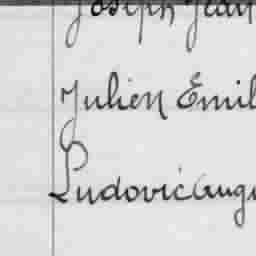 Joseph Jean
Julien Emil
Ludovic Augu